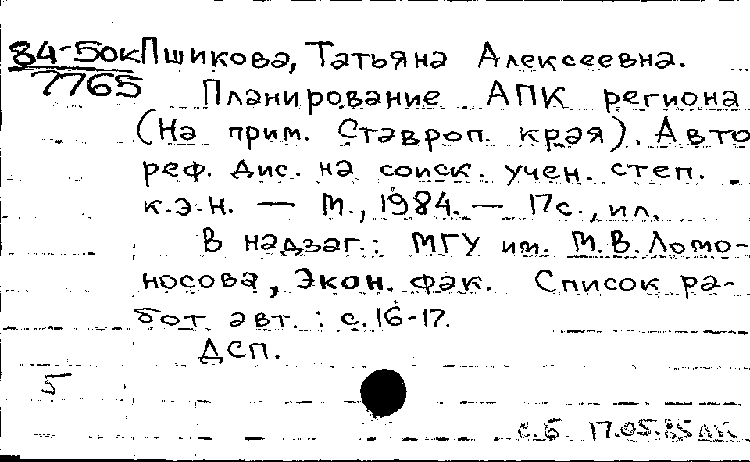 84-50к Пшикова, Татьяна Алексеевна.
7765 Планирование АПК региона
(На прим. Ставроп. края). Авто
реф. дис. на соиск. учен. степ.
к.э.н. — М., 1984. — 17с., ил.
В надзаг.: МГУ им. М.В. Ломо-
носова, Экон. фак. Список ра-
бот авт.: с. 16-17.
ДСП.
5
с.б 17.05.85